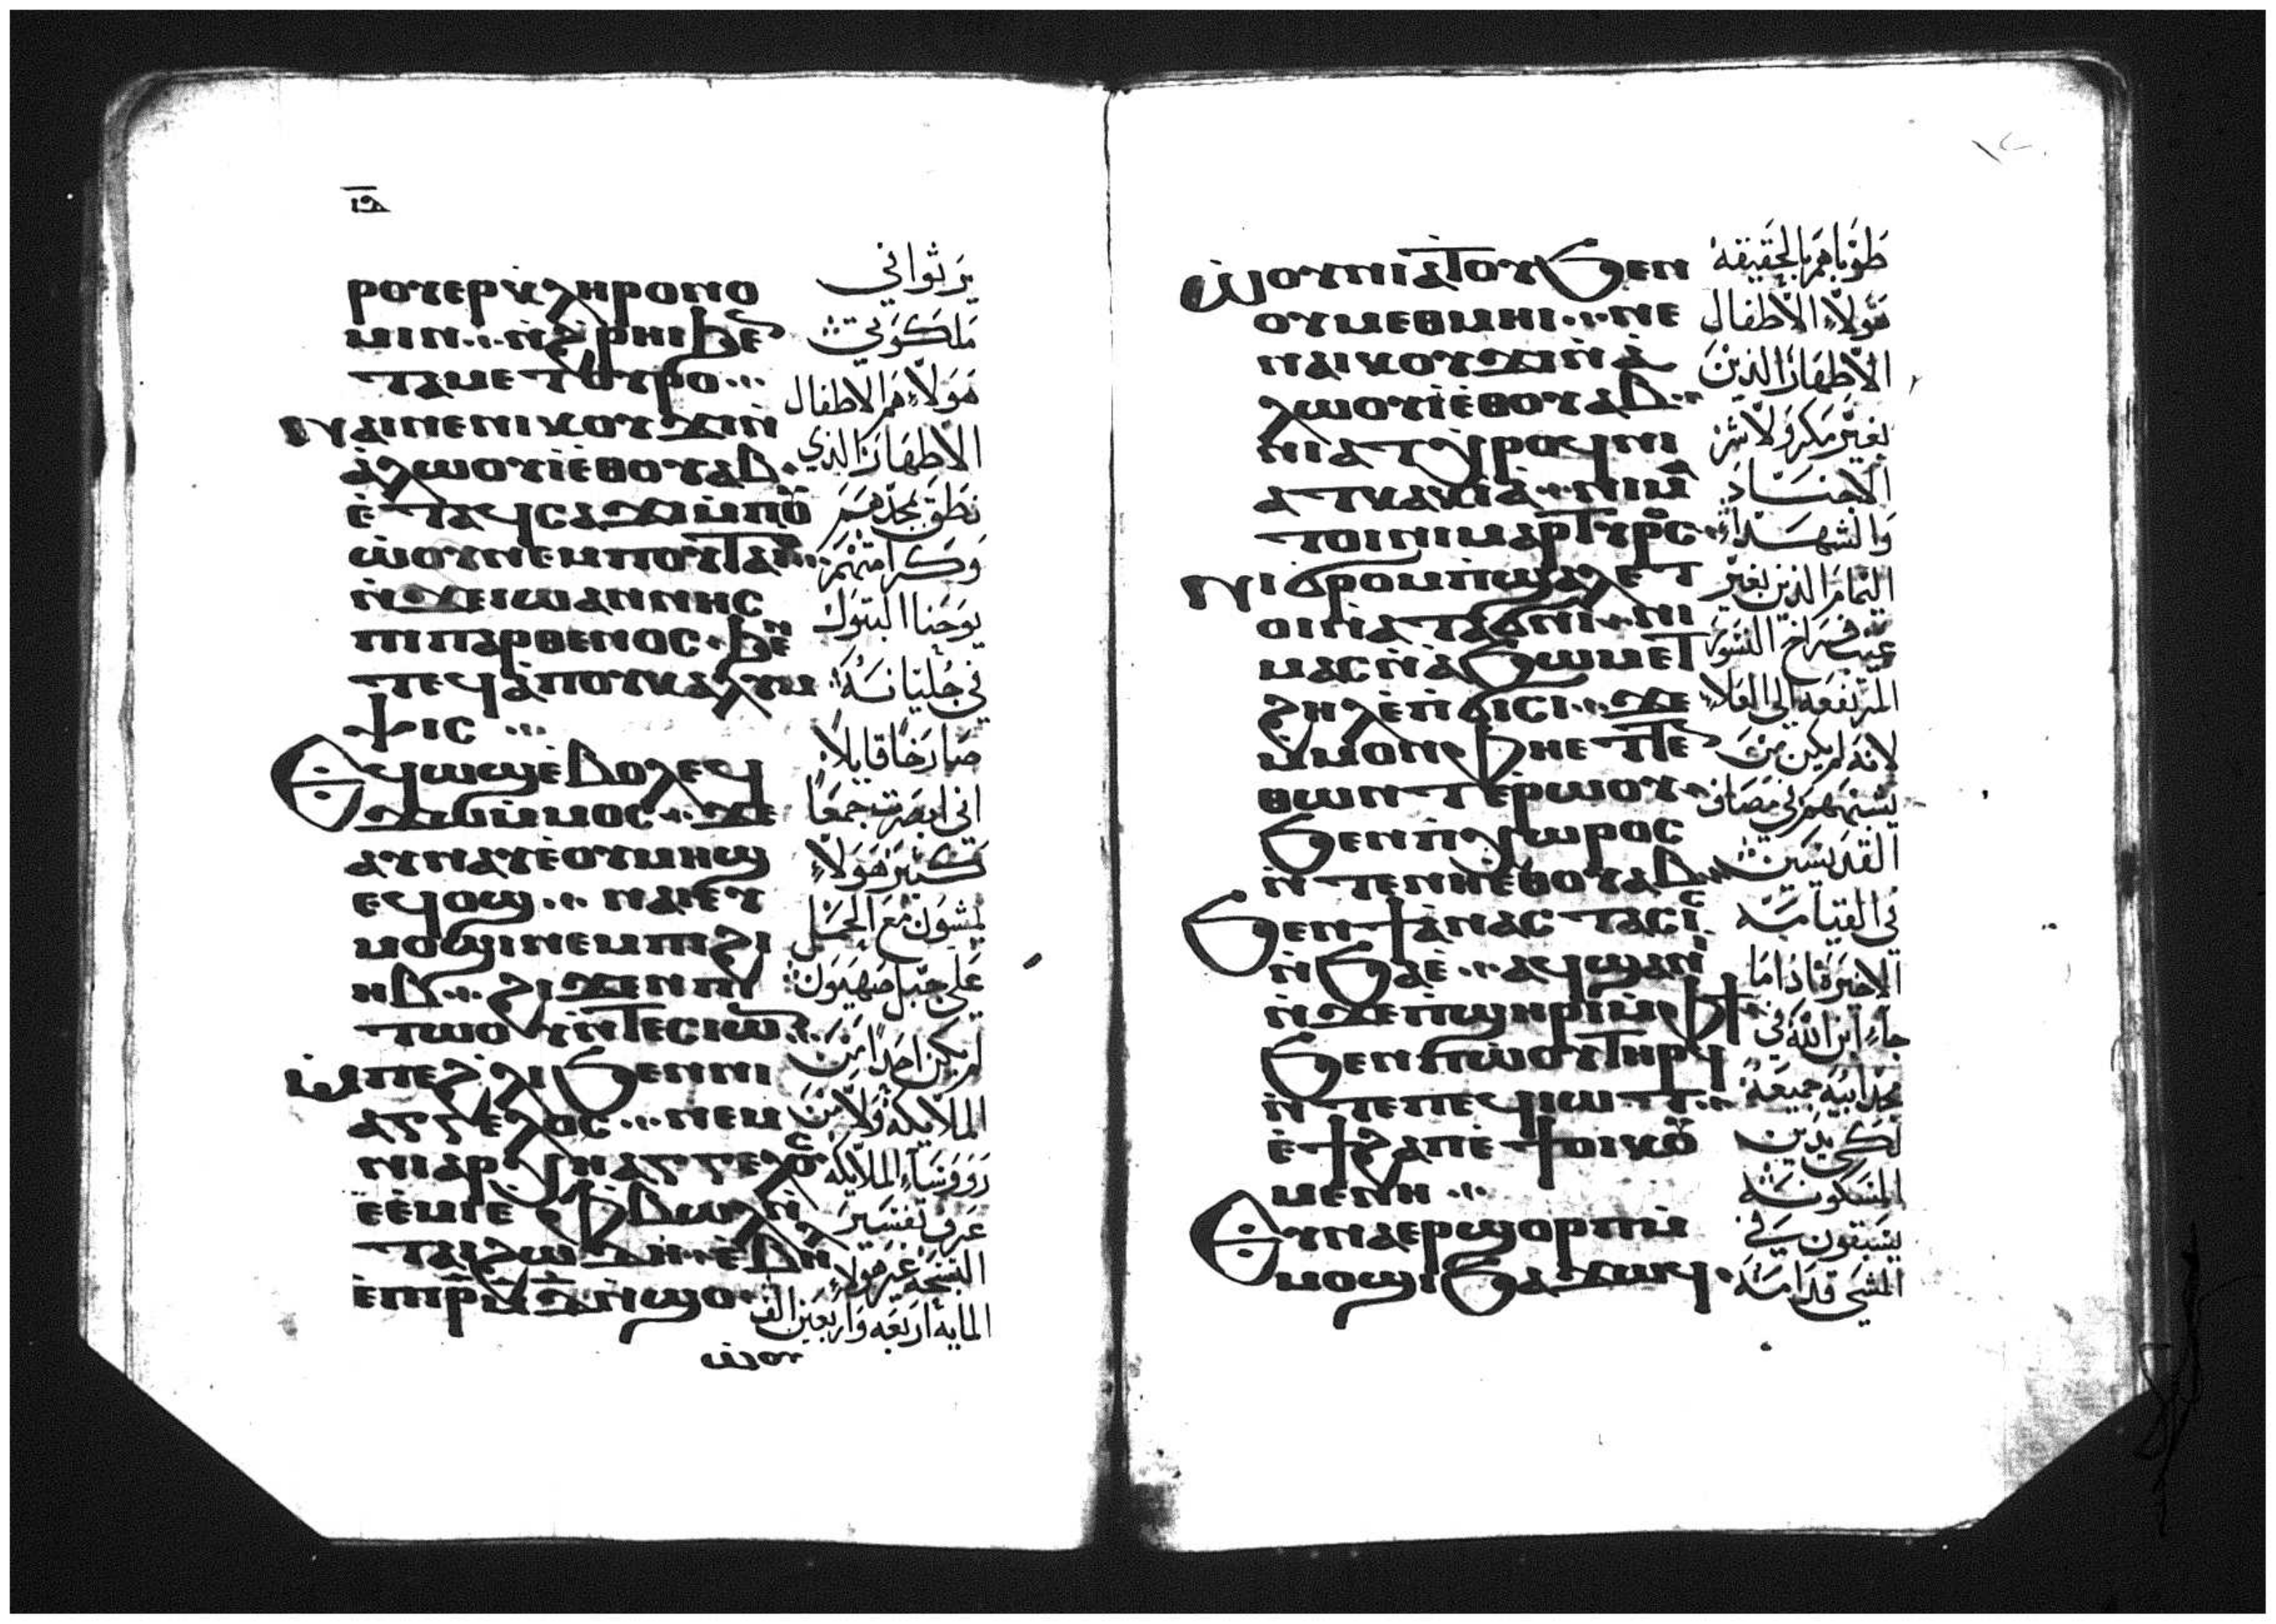 ⲓⲁ
ⲣⲟⲩⲉⲣⲕ̀ⲗⲏⲣⲟⲛⲟ
ⲙⲓⲛ ⲛ̀ϩ̀ⲣⲏⲓ ϧⲉ
ⲧⲁⲙⲉⲧⲟⲩⲣⲟ
ⲛⲁⲓⲛⲉⲛⲓⲕⲟⲩϫⲓⲛ̀
ⲁ̀ⲗⲱⲟⲩⲓ̀ⲉⲑⲟⲩⲁⲃ
ⲉ̀ⲧⲁϥⲥⲁϫⲓⲙ̀ⲡⲟⲩ
ⲱ̀ⲟⲩⲛⲉⲙⲡⲟⲩⲧⲁⲓ
ⲛ̀ϫⲉⲓⲱⲁⲛⲛⲏⲥ
ⲡⲓⲡⲁⲣⲑⲉⲛⲟⲥ ϧⲉⲛ
ⲧⲉϥⲁ̀ⲡⲟⲩⲕⲁⲗⲩⲙ
ⲯⲓⲥ
ⲉϥⲱϣⲉ̀ⲃⲟⲗⲉϥ
ϫⲱⲙ̀ⲙⲟⲥ ϫⲉ
ⲁⲩⲛⲁⲩⲉ̀ⲟⲩⲙⲏϣ
ⲉϥⲟϣ ⲛⲁⲓⲉⲩ
ⲙⲟϣⲓⲛⲉⲙⲡⲓϩⲓ
ⲏⲃ ϩⲓϫⲉⲛⲡⲓ
ⲧⲱⲟⲩⲛ̀ⲧⲉⲥⲓⲱⲛ
ⲙ̀ⲡⲉϩ̀ⲗⲓϧⲉⲛⲛⲓ
ⲁⲅⲅⲉⲗⲟⲥ ⲛⲉⲙ
ⲛⲓⲁⲣⲭⲏⲁⲅⲅⲉⲗⲟⲥ
ⲉ̀ⲉ̀ⲙⲓⲉ̀ⲫⲃⲱⲗⲛ̀
ⲧⲁⲓϩⲱⲇⲏ ⲉ̀ⲃⲏⲗ
ⲉ̀ⲡⲓⲣ̅ⲙ̅ⲇ̅ⲛ̀ϣⲟ
ⲱ̀ⲟⲩⲛ
يرثوا في
ملكوتي
هولاء هم الاطفال
الاطهار الذي
نطق بمجدهم
وكرامتهم
يوحنا البتول
في جليانسه
صارخا قايلا
اني ابصرت جمعا
كثير هولاء
يمشون مع الحمل
على جبل صهيون
لم يكن احدا من
الملايكه ولا من
رووساء الملايكه
عرف تفسير
التسبحه غير هولاء
المايه اربعه واربعين الف
١٢
ⲱ̀ⲟⲩⲛⲓⲁⲧⲟⲩϧⲉⲛ
ⲟⲩⲙⲉⲑⲙⲏⲓ ⲛⲉ
ⲛⲁⲓⲕⲟⲩϫⲓⲛ̀ⲁ̀
ⲗⲱⲟⲩⲓ̀ⲉⲑⲟⲩⲁⲃ
ⲛⲓⲁⲧⲭ̀ⲣⲟϥⲛⲓ
ⲁⲧⲕⲁⲕⲓⲁ̀ ⲛⲓⲙ̀
ⲧⲟⲓⲛⲓⲙⲁⲣⲧⲩⲣⲟⲥ
ⲛⲓϭⲣⲟⲙⲡⲓⲛ̀ϣⲉⲗⲉⲧ
ⲟⲓⲛ̀ⲁⲧⲁϭⲛⲓ ⲛⲓ
ⲙⲁⲥⲛ̀ⲁ̀ϧⲱⲙⲉⲧ
ϩⲏⲗⲉ̀ⲡ̀ϭⲓⲥⲓ ϫⲉ
ⲙ̀ⲙⲟⲛⲫⲏⲉⲧⲧⲉ
ⲑⲱⲛⲧⲉ̀ⲣⲱⲟⲩ
ϧⲉⲛⲡ̀ⲭⲱⲣⲟⲥ
ⲛ̀ⲧⲉⲛⲏⲉⲑⲟⲩⲁⲃ
ϧⲉⲛϯⲁ̀ⲛⲁⲥⲧⲁⲥⲓⲥ
ⲛ̀ϧⲁⲉ̀ ⲁϥϣⲁⲛⲓ̀
ⲛ̀ϫⲉⲡ̀ϣⲏⲣⲓⲙ̀ⲫϯ
ϧⲉⲛⲡ̀ⲱⲟⲩⲧⲏⲣϥ
ⲛ̀ⲧⲉⲡⲉϥⲓⲱⲧ
ⲉ̀ϯϩⲁⲡⲉ̀ϯⲟⲓⲕⲟⲩ
ⲙⲉⲛⲏ
ⲉⲩⲛⲁⲉⲣϣⲟⲣⲡⲙ̀
ⲙⲟϣⲓϧⲁϫⲱϥ
طوباهم بالحقيقه
هولاء الاطفال
الاطهار الذين
بغير مكر ولا شر
الاجناد
والشهداء
اليمام الذين بغير
عيب فراخ النسور
المرتفعه الى العلاء
لانه لم يكن من
يشبههم في مصاف
القديسين
في القيامه
الاخيره اذا ما
جاء ابن الله في
مجد ابيه جميعه
لكي يدين
المسكونه
يسبقون في
المشي قدامه